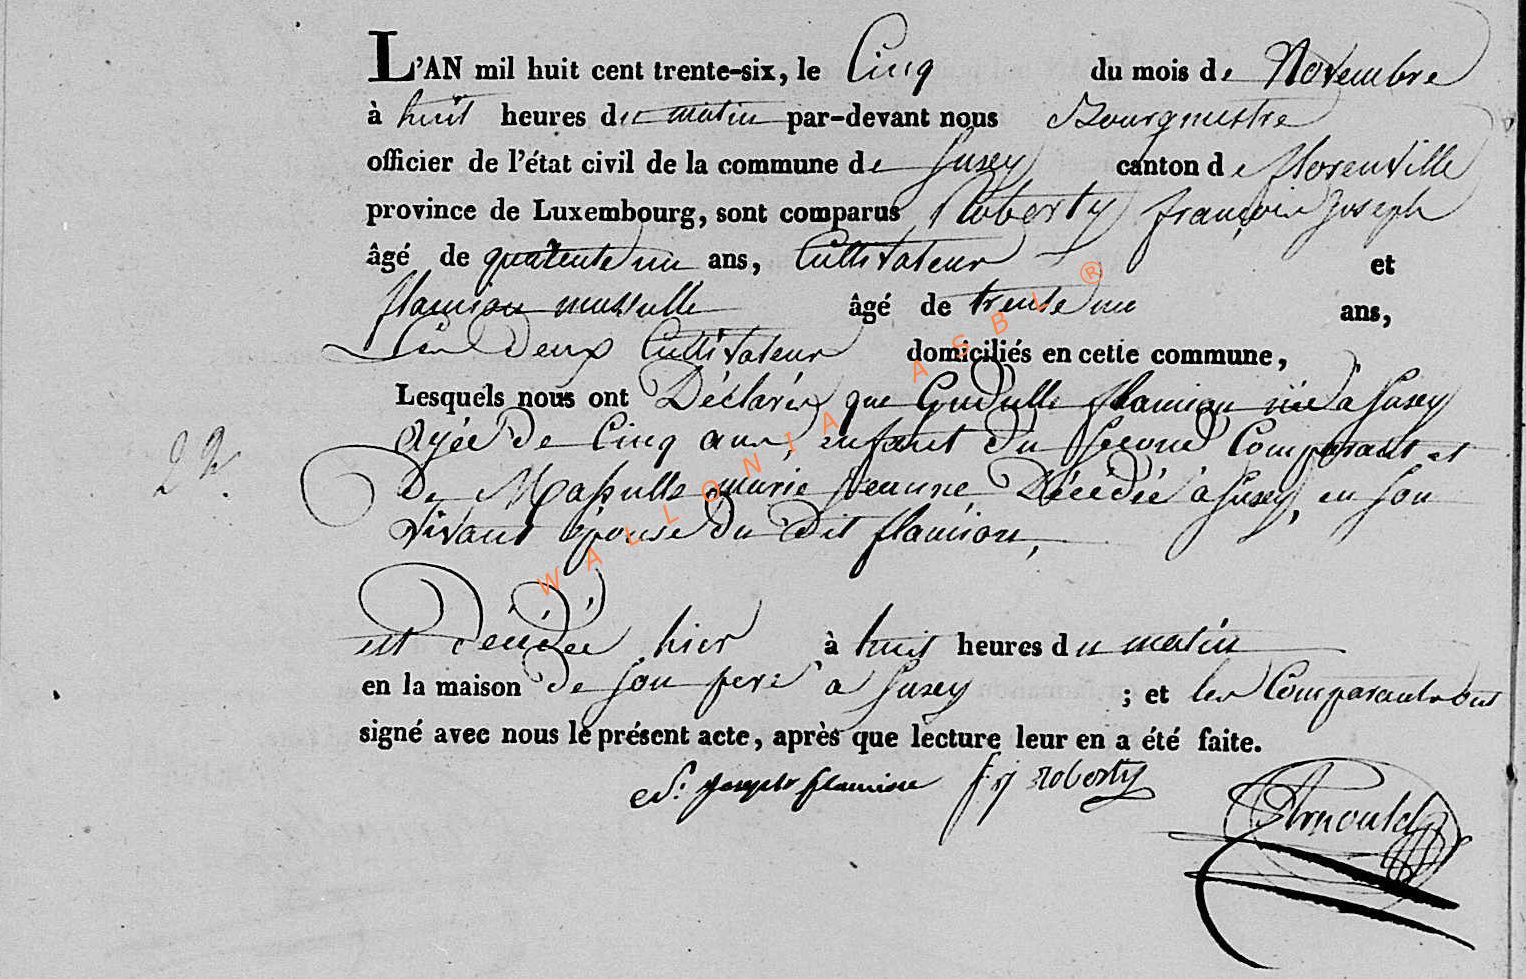 L'AN mil huit cent trente-six, le Cinq du mois de Novembre
à huit heures du matin par-devant nous Bourgmestre
officier de l'état civil de la commune de Suxey canton de florenville
province de Luxembourg, sont comparus Roberty françois Joseph
âgé de quarente un ans, Cultivateur et
flamion âgé de trente un ans,
deux Cultivateur domiciliés en cette commune,
Lesquels nous ont Déclarés que Gudulle flamion née à Suxey
agée de Cinq ans, enfant du Second Comparant et
De Massulle marie Jeanne Décédée à Suxey, en Son
vivant épouse du Dit flamion,
22.
est Décédée hier à huit heures du matin
en la maison de Son pere à Suxey ; et les Comparants ont
signé avec nous le présent acte, après que lecture leur en a été faite.
Joseph flamion f j Roberty
Arnould
WALLONIA ASBL ®